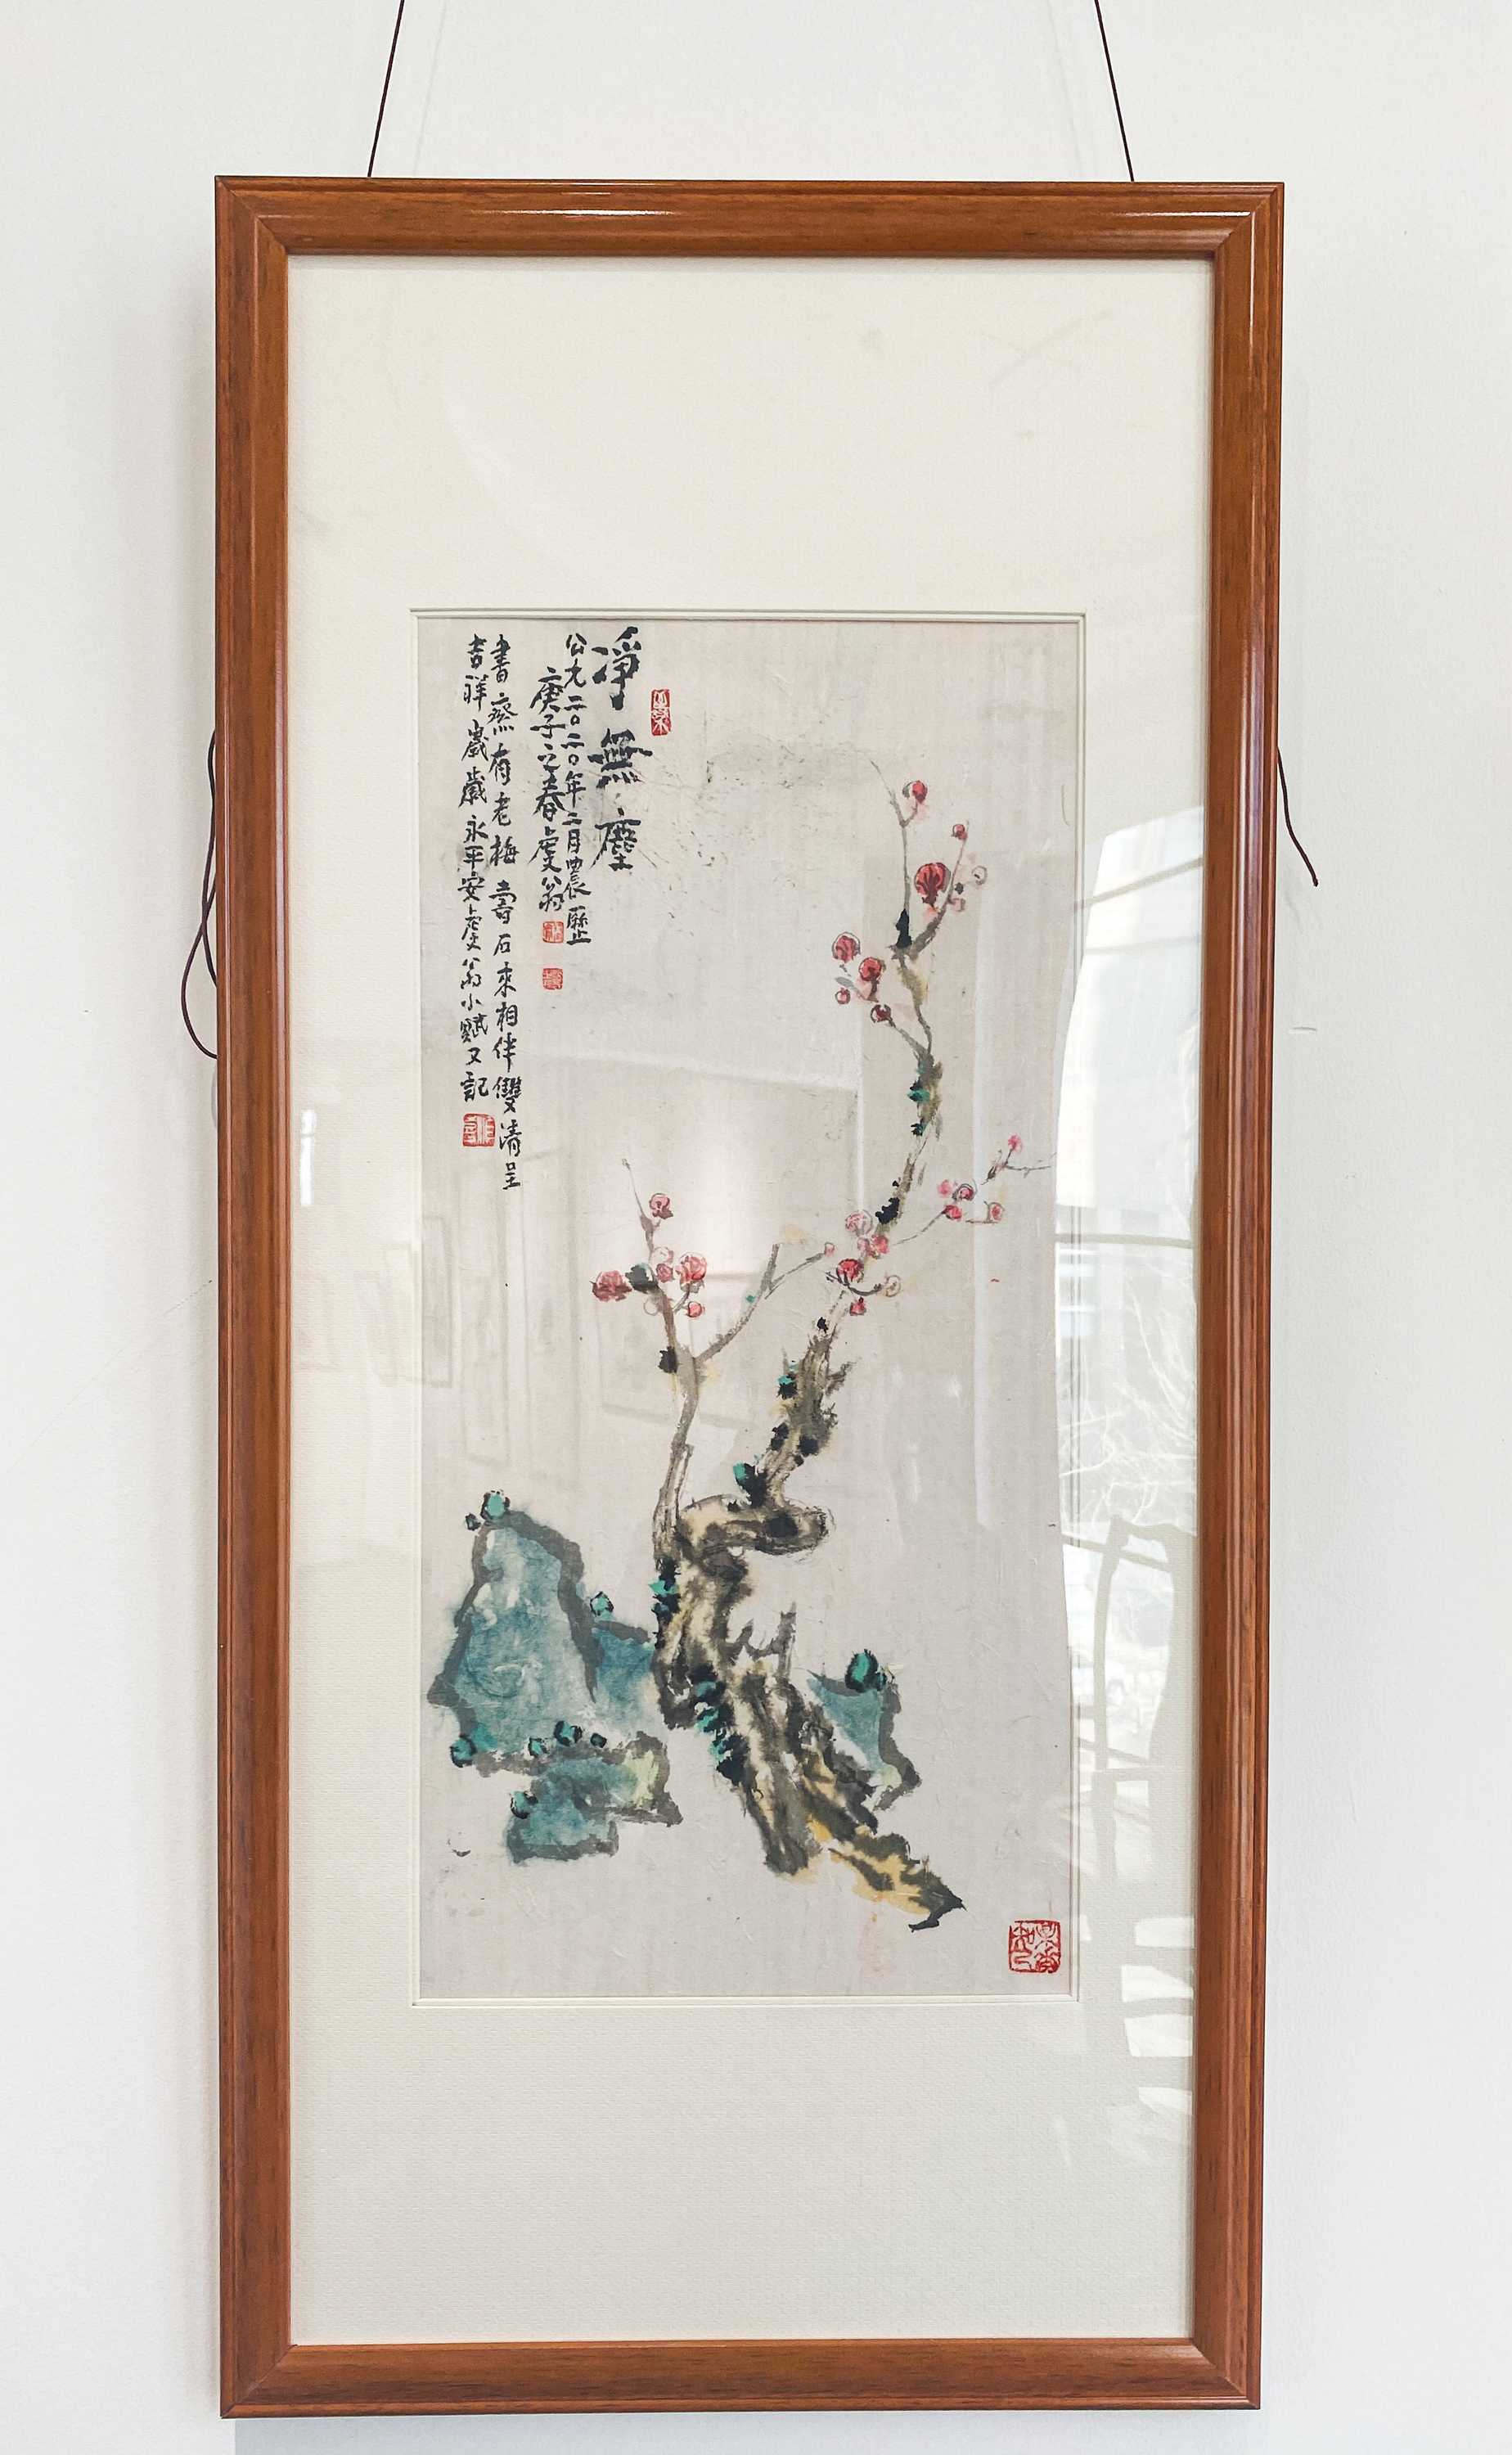 淨無塵
公元二〇二〇年二月農歷
庚子之春虔翁
書齋有老梅壽石來相伴雙清呈
吉祥歲歲永平安虔翁小賦又記